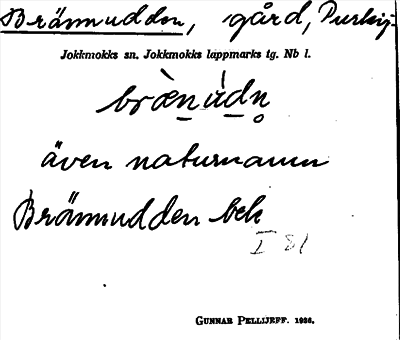 Brännudden, gård, Purkij.
Jokkmokks sn. Jokkmokks lappmarks tg. Nb l.
bræ̀núdn̥
även naturnamn
Brännudden bek
I 81
GUNNAR PELLIJEFF. 1936.